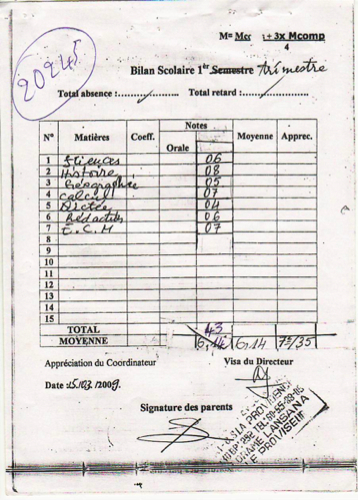 M= Mcc + 3x Mcomp
4
20245
Bilan Scolaire 1er Semestre trimestre
Total absence :............... Total retard :...............
N° Matières Coeff. Notes Moyenne Apprec.
Orale
1 Sciences 06
2 Histoire 08
3 Géographie 05
4 calcul 07
5 Dictée 04
6 Rédaction 06
7 E.C.M 07
8
9
10
11
12
13
14
15
TOTAL 43
MOYENNE 6,14 6,14 7e/35
Appréciation du Coordinateur Visa du Directeur
Date : 15/03/2009
Signature des parents
LA PROVIDENCE
DRAME LANSANA
LE PROVISEUR